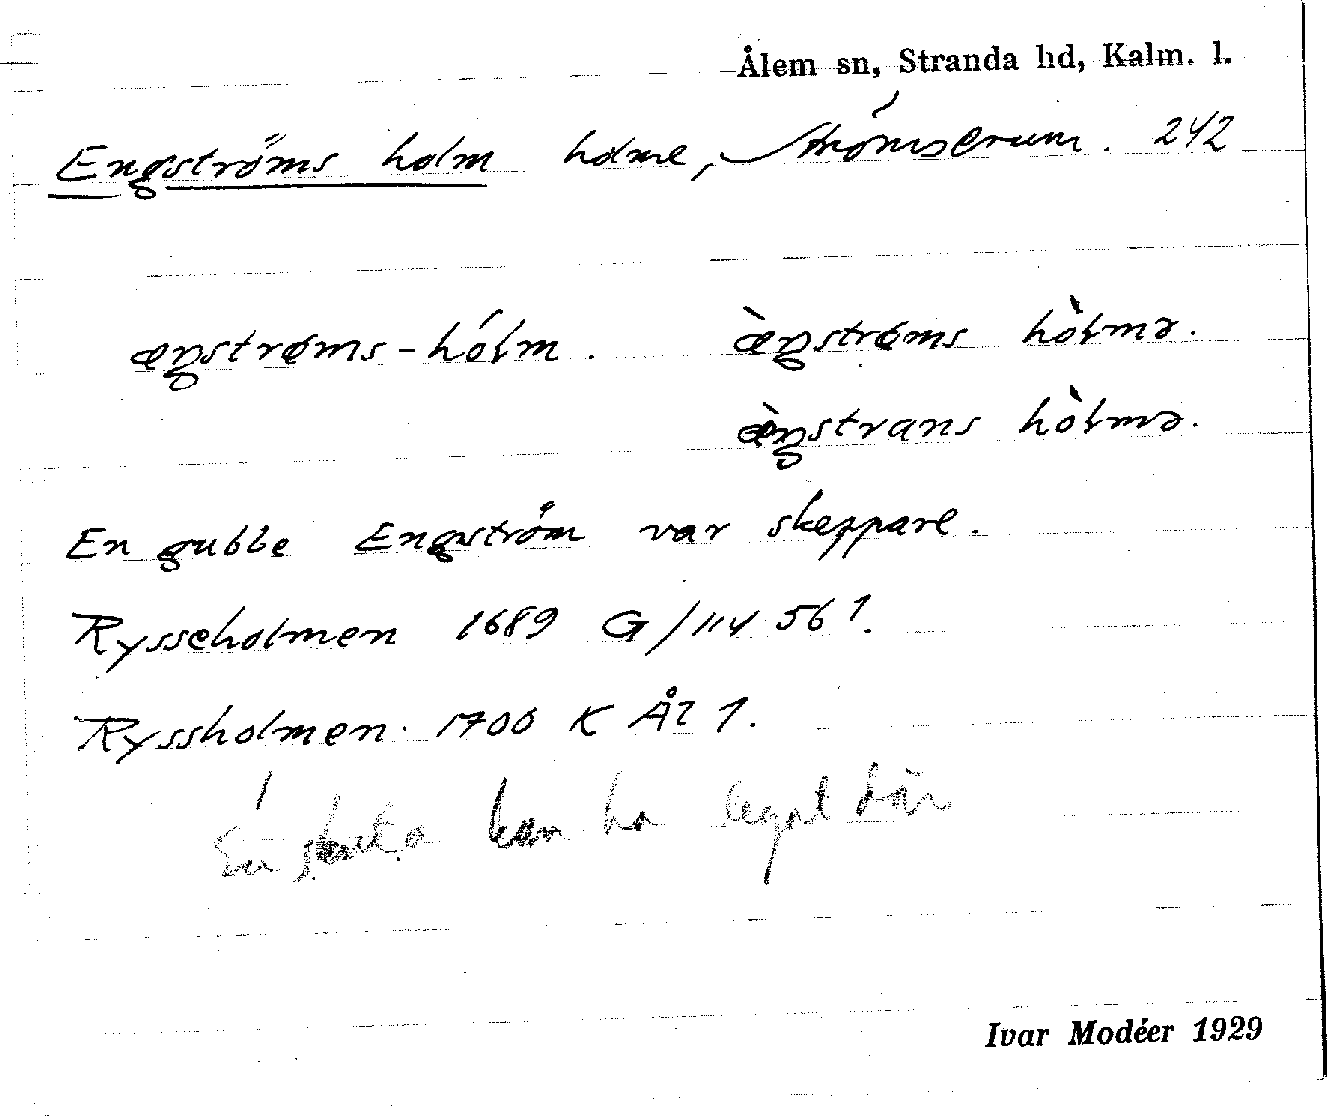 Ålem sn, Stranda hd, Kalm. l.
Engströms holm holme, Strömserum. 242
æŋstrøms-hólm. æ̀ŋstrøms hòlmə.
æ̀ŋstrans hòlmə.
En gubbe Engström var skeppare.
Rysseholmen 1689 G/114 56 1.
Ryssholmen. 1706 K Ål 1.
En skuta kan ha legat där
Ivar Modéer 1929